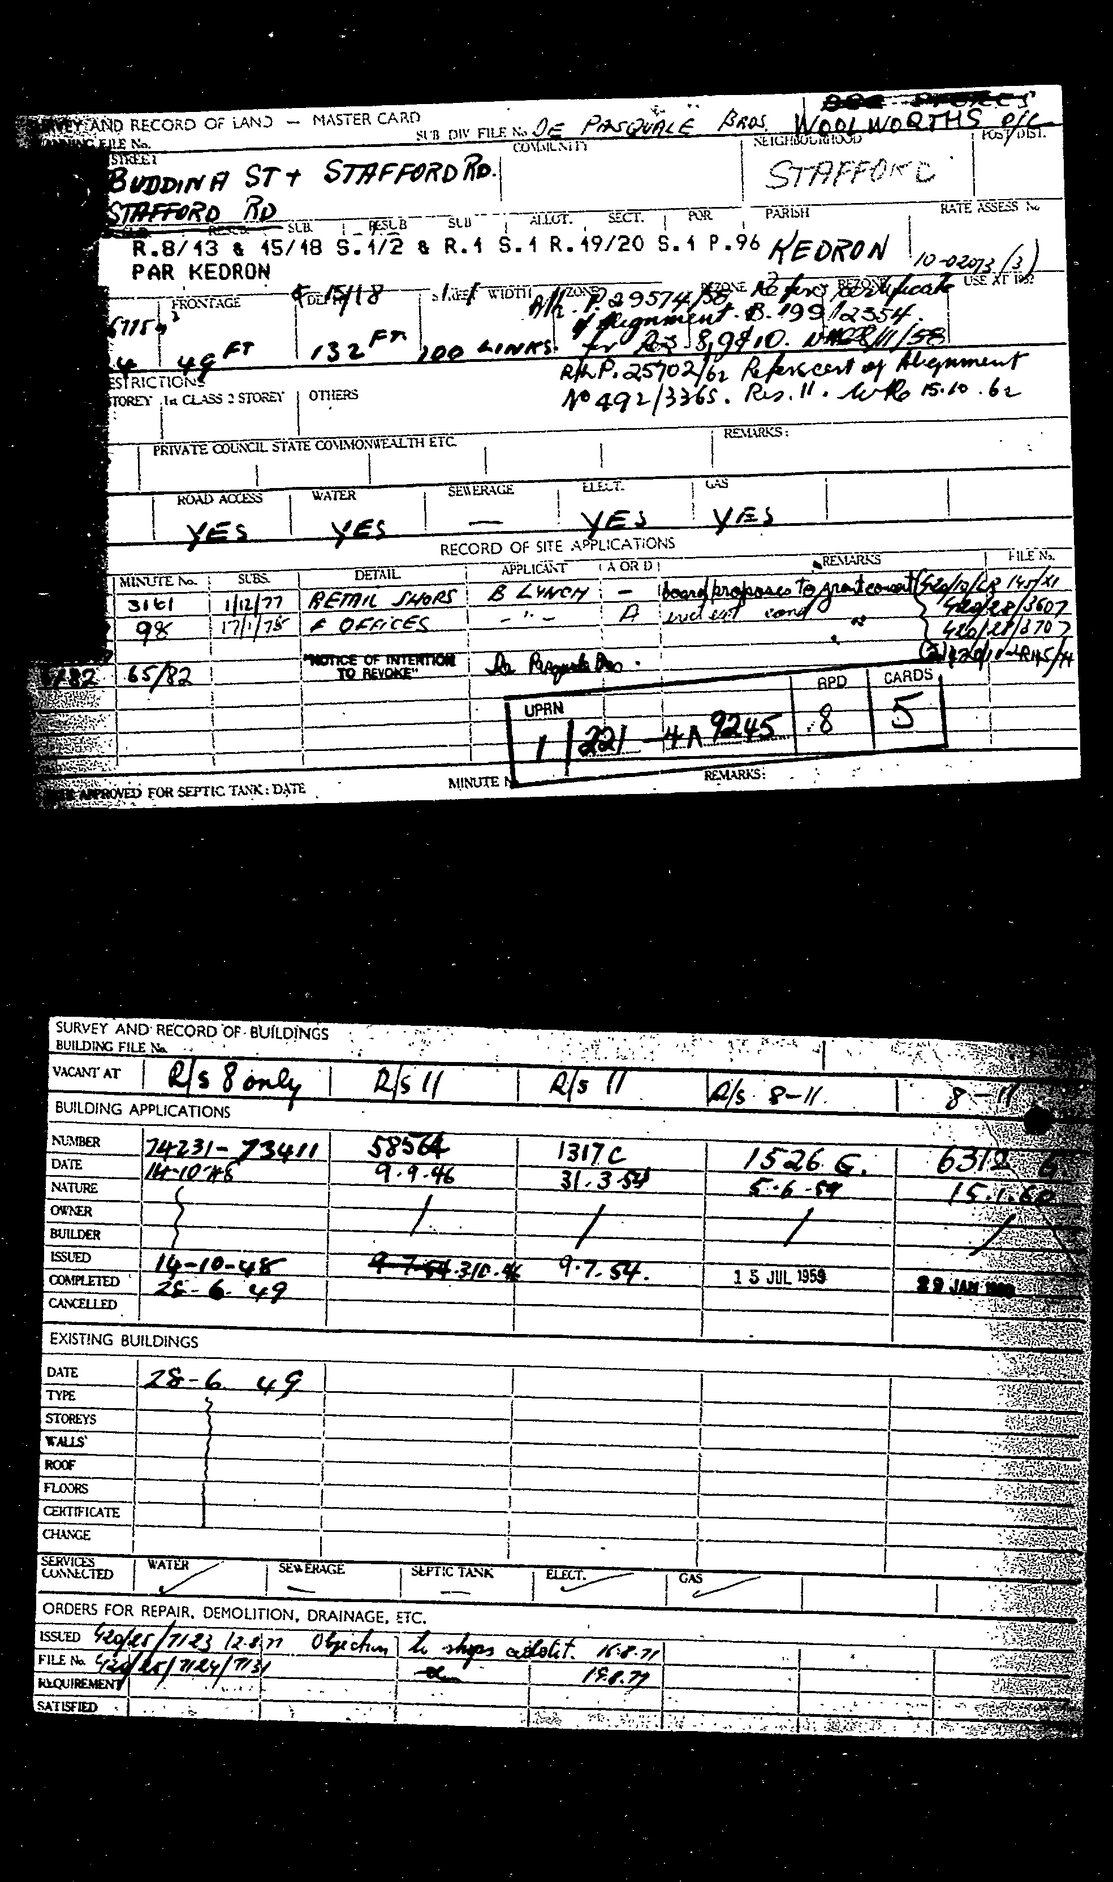 SURVEY AND RECORD OF LAND — MASTER CARD
SUB DIV FILE No. DE PASQUALE BROS. WOOLWORTHS P/L
FILE No.
STREET COMMUNITY NEIGHBOURHOOD POST/DIST.
BUDDINA ST + STAFFORD RD. STAFFORD
STAFFORD RD
SUB. RESUB SUB ALLOT. SECT. POR PARISH RATE ASSESS No
R.8/13 & 15/18 S.1/2 & R.1 S.1 R.19/20 S.1 P.96 KEDRON 10-02073/(3)
PAR KEDRON
FRONTAGE WIDTH ZONE REZONE REZONE USE AT 195?
15/18 P.29574/58 Refers certificate
of Alignment B.199/2354.
49 FT 132 FT. 100 LINKS. for Res 8,9&10. 28/11/58
RESTRICTIONS
R/L P.25702/62 Refers cert of Alignment
STOREY 1st CLASS 2 STOREY OTHERS No 492/3365. Res. 11. 15.10.62
PRIVATE COUNCIL STATE COMMONWEALTH ETC. REMARKS:
ROAD ACCESS WATER SEWERAGE ELECT. GAS
YES YES — YES YES
RECORD OF SITE APPLICATIONS
MINUTE No. SUBS. DETAIL APPLICANT A OR D REMARKS FILE No.
3161 1/12/77 RETAIL SHOPS B LYNCH — board proposes to grant consent
98 17/1/78 & OFFICES - " - A 420/28/3607
420/28/3707
65/82 "NOTICE OF INTENTION TO REVOKE" De Pasquale Bros.
UPRN RPD CARDS
1 221 -4A 9245 8 5
APPROVED FOR SEPTIC TANK: DATE MINUTE N REMARKS:
SURVEY AND RECORD OF BUILDINGS
BUILDING FILE No.
VACANT AT R/s 8 only R/s 11 R/s 11 R/s 8-11 8-11
BUILDING APPLICATIONS
NUMBER 74231-73411 58564 1317C 1526 G. 6312 G
DATE 14-10-48 9.9.46 31.3.54 5.6.59 15.1.60
NATURE
OWNER
BUILDER
ISSUED 14-10-48 9.7.54 3/10.46 9.7.54. 15 JUL 1959 29 JAN
COMPLETED 28-6.49
CANCELLED
EXISTING BUILDINGS
DATE 28-6 49
TYPE
STOREYS
WALLS
ROOF
FLOORS
CERTIFICATE
CHANGE
SERVICES CONNECTED WATER SEWERAGE — SEPTIC TANK — ELECT. GAS
ORDERS FOR REPAIR, DEMOLITION, DRAINAGE, ETC.
ISSUED 420/25/7123 12.8.77 Objection to shops 16.8.77
FILE No. 420/25/7124/7131 19.8.77
REQUIREMENT
SATISFIED